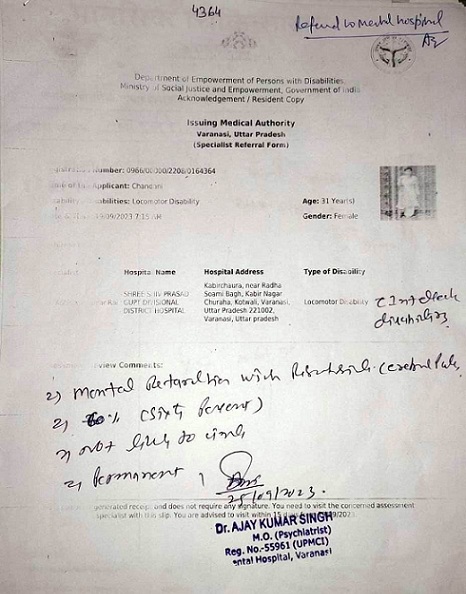 4364
Referred to mental hospital
Department of Empowerment of Persons with Disabilities,
Ministry of Social Justice and Empowerment, Government of India
Acknowledgement / Resident Copy
Issuing Medical Authority
Varanasi, Uttar Pradesh
(Specialist Referral Form)
Number: 0966/00000/2208/0164364
Applicant: Chandni
Age: 31 Year(s)
Disabilities: Locomotor Disability
Gender: Female
09/2023 7:15 AM
Hospital Name
Hospital Address
Type of Disability
SHREE SHIV PRASAD
GUPT DIVISIONAL
DISTRICT HOSPITAL
Kabirchaura, near Radha
Soami Bagh, Kabir Nagar
Churaha, Kotwali, Varanasi,
Uttar Pradesh 221002,
Varanasi, Uttar pradesh
Locomotor Disability
view Comments:
Mental Retardation with
60% (Sixty Percent)
not likely to
Permanent
25/09/2023.
generated receipt and does not require any signature. You need to visit the concerned assessment
specialist with this slip. You are advised to visit within 15 days
Dr. AJAY KUMAR SINGH
M.O. (Psychiatrist)
Reg. No.-55961 (UPMCI)
ental Hospital, Varanasi